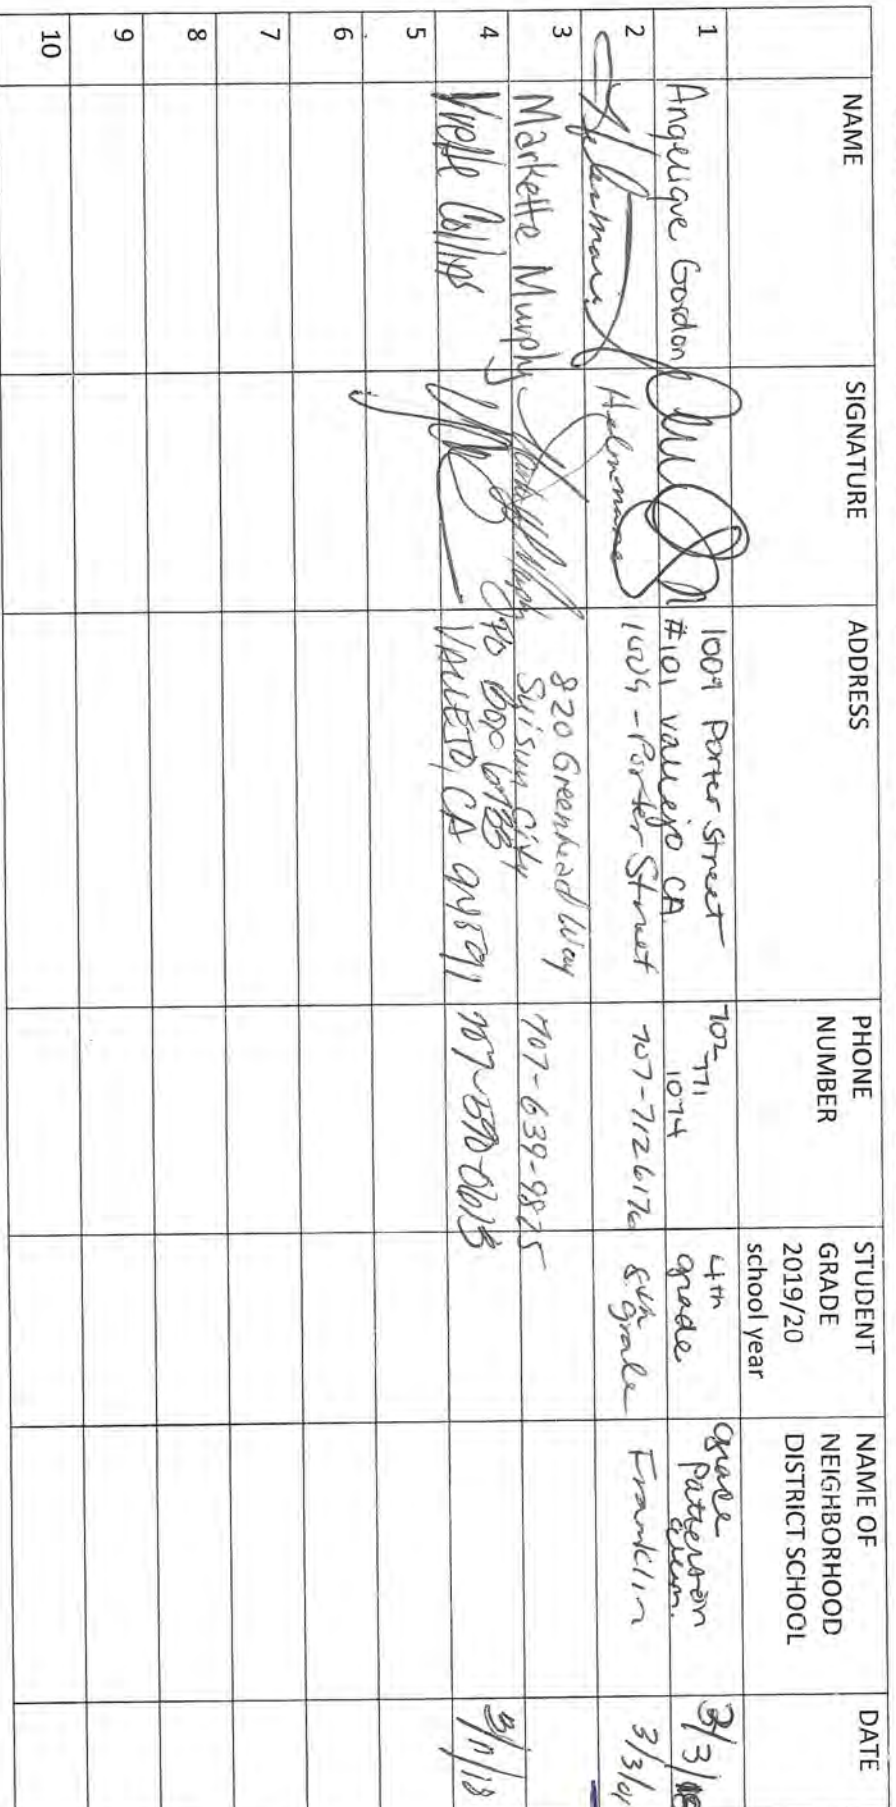 NAME
SIGNATURE
ADDRESS
PHONE
NUMBER
STUDENT
GRADE
2019/20
school year
NAME OF
NEIGHBORHOOD
DISTRICT SCHOOL
DATE
1
Angelique Gordon
1009 Porter Street
#101 Vallejo CA.
707-771
1074
4th
grade
Grace
Patterson
elem.
3/3/18
2
1009 - Porter Street
707-7126176
8th
grade
Franklin
3/3/
3
Markette Murphy
820 Greenhead Way
Suisun City
707-639-9875
4
Yvette Collins
PO Box
VALLEJO, CA 94591
3/11/18
5
6
7
8
9
10